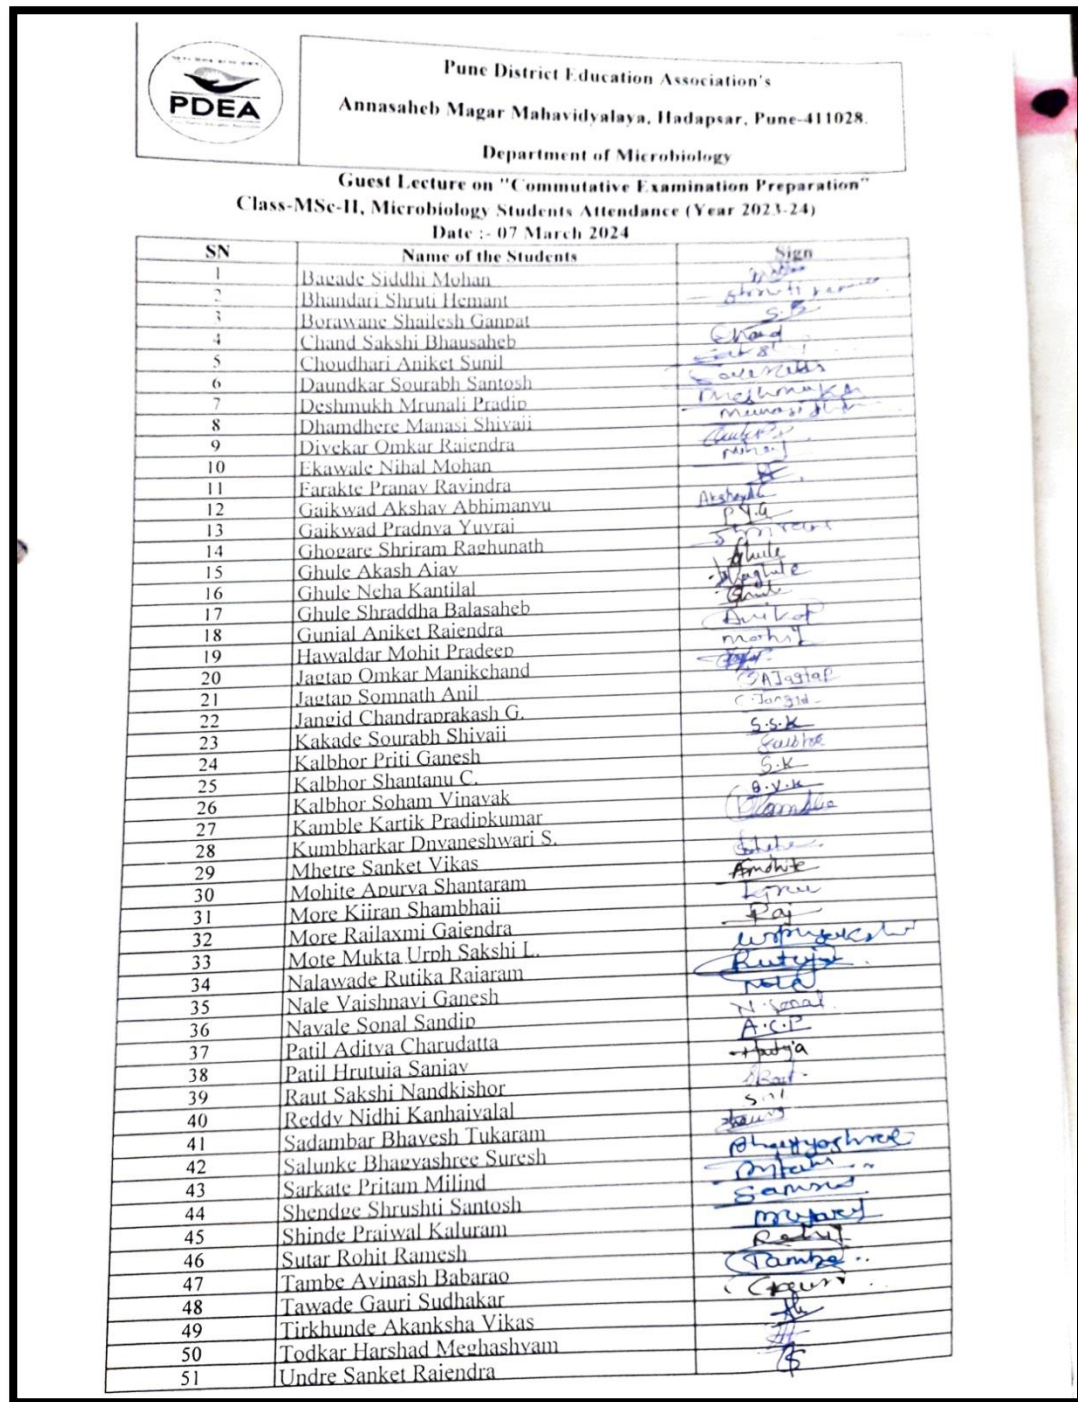 PDEA
Pune District Education Association's
Annasaheb Magar Mahavidyalaya, Hadapsar, Pune-411028.
Department of Microbiology
Guest Lecture on "Commutative Examination Preparation"
Class-MSc-II, Microbiology Students Attendance (Year 2023-24)
Date :- 07 March 2024
SN Name of the Students Sign
1 Bagade Siddhi Mohan
2 Bhandari Shruti Hemant
3 Borawane Shailesh Ganpat S.B
4 Chand Sakshi Bhausaheb Chand
5 Choudhari Aniket Sunil
6 Daundkar Sourabh Santosh
7 Deshmukh Mrunali Pradip
8 Dhamdhere Manasi Shivaji
9 Divekar Omkar Rajendra
10 Ekawale Nihal Mohan
11 Farakte Pranav Ravindra
12 Gaikwad Akshay Abhimanyu
13 Gaikwad Pradnya Yuvraj P.Y.G
14 Ghogare Shriram Raghunath
15 Ghule Akash Ajay Ghule
16 Ghule Neha Kantilal
17 Ghule Shraddha Balasaheb
18 Gunjal Aniket Rajendra
19 Hawaldar Mohit Pradeep Mohit
20 Jagtap Omkar Manikchand
21 Jagtap Somnath Anil SAJagtap
22 Jangid Chandraprakash G. C.Jangid
23 Kakade Sourabh Shivaji S.S.K
24 Kalbhor Priti Ganesh
25 Kalbhor Shantanu C. S.K
26 Kalbhor Soham Vinayak S.V.K
27 Kamble Kartik Pradipkumar
28 Kumbharkar Dnyaneshwari S.
29 Mhetre Sanket Vikas
30 Mohite Apurva Shantaram Amohite
31 More Kiiran Shambhaji
32 More Rajlaxmi Gajendra Raj
33 Mote Mukta Urph Sakshi L.
34 Nalawade Rutika Rajaram
35 Nale Vaishnavi Ganesh
36 Navale Sonal Sandip N.Sonal
37 Patil Aditya Charudatta A.C.P
38 Patil Hrutuja Sanjay
39 Raut Sakshi Nandkishor
40 Reddy Nidhi Kanhaiyalal
41 Sadambar Bhavesh Tukaram
42 Salunke Bhagyashree Suresh Bhagyashree
43 Sarkate Pritam Milind
44 Shendge Shrushti Santosh
45 Shinde Prajwal Kaluram
46 Sutar Rohit Ramesh
47 Tambe Avinash Babarao Tambe
48 Tawade Gauri Sudhakar Gauri
49 Tirkhunde Akanksha Vikas
50 Todkar Harshad Meghashyam
51 Undre Sanket Rajendra